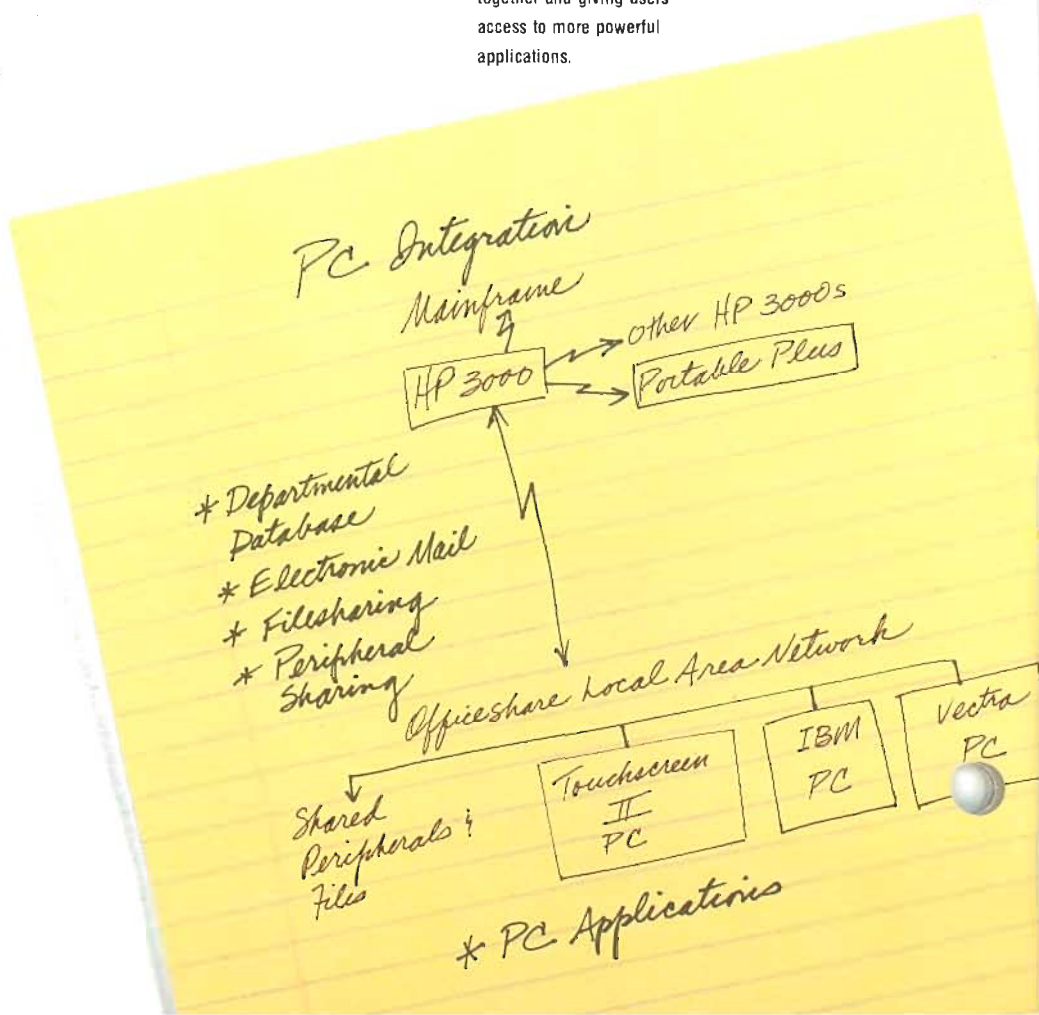 together and giving users
access to more powerful
applications.
PC Integration
Mainframe
Other HP 3000s
HP 3000
Portable Plus
* Departmental
Database
* Electronic Mail
* Filesharing
* Peripheral
Sharing
Officeshare Local Area Network
Shared
Peripherals &
Files
Touchscreen
II
PC
IBM
PC
Vectra
PC
* PC Applications